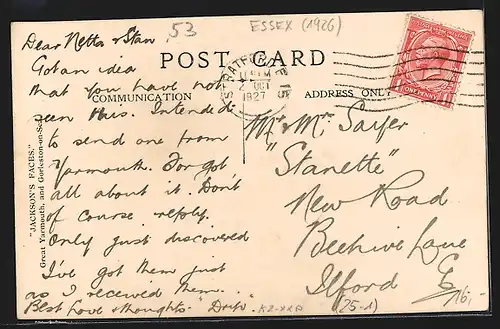 53
ESSEX (1926)
POST CARD
COMMUNICATION
ADDRESS ONLY
STRATFORD
2 OCT
1927
ONE PENNY
"JACKSON'S FACES."
Great Yarmouth, and Gorleston-on-Sea.
Dear Netta & Stan
Got an idea
that you have not
seen this. Intended
to send one from
Yarmouth. Forgot
all about it. Don't
of course reply.
Only just discovered
I've got them just
as I received them.
Best Love & thoughts.
Mr. Mrs. Sayer
"Stanette"
New Road
Beehive Lane
Ilford
(25-1)